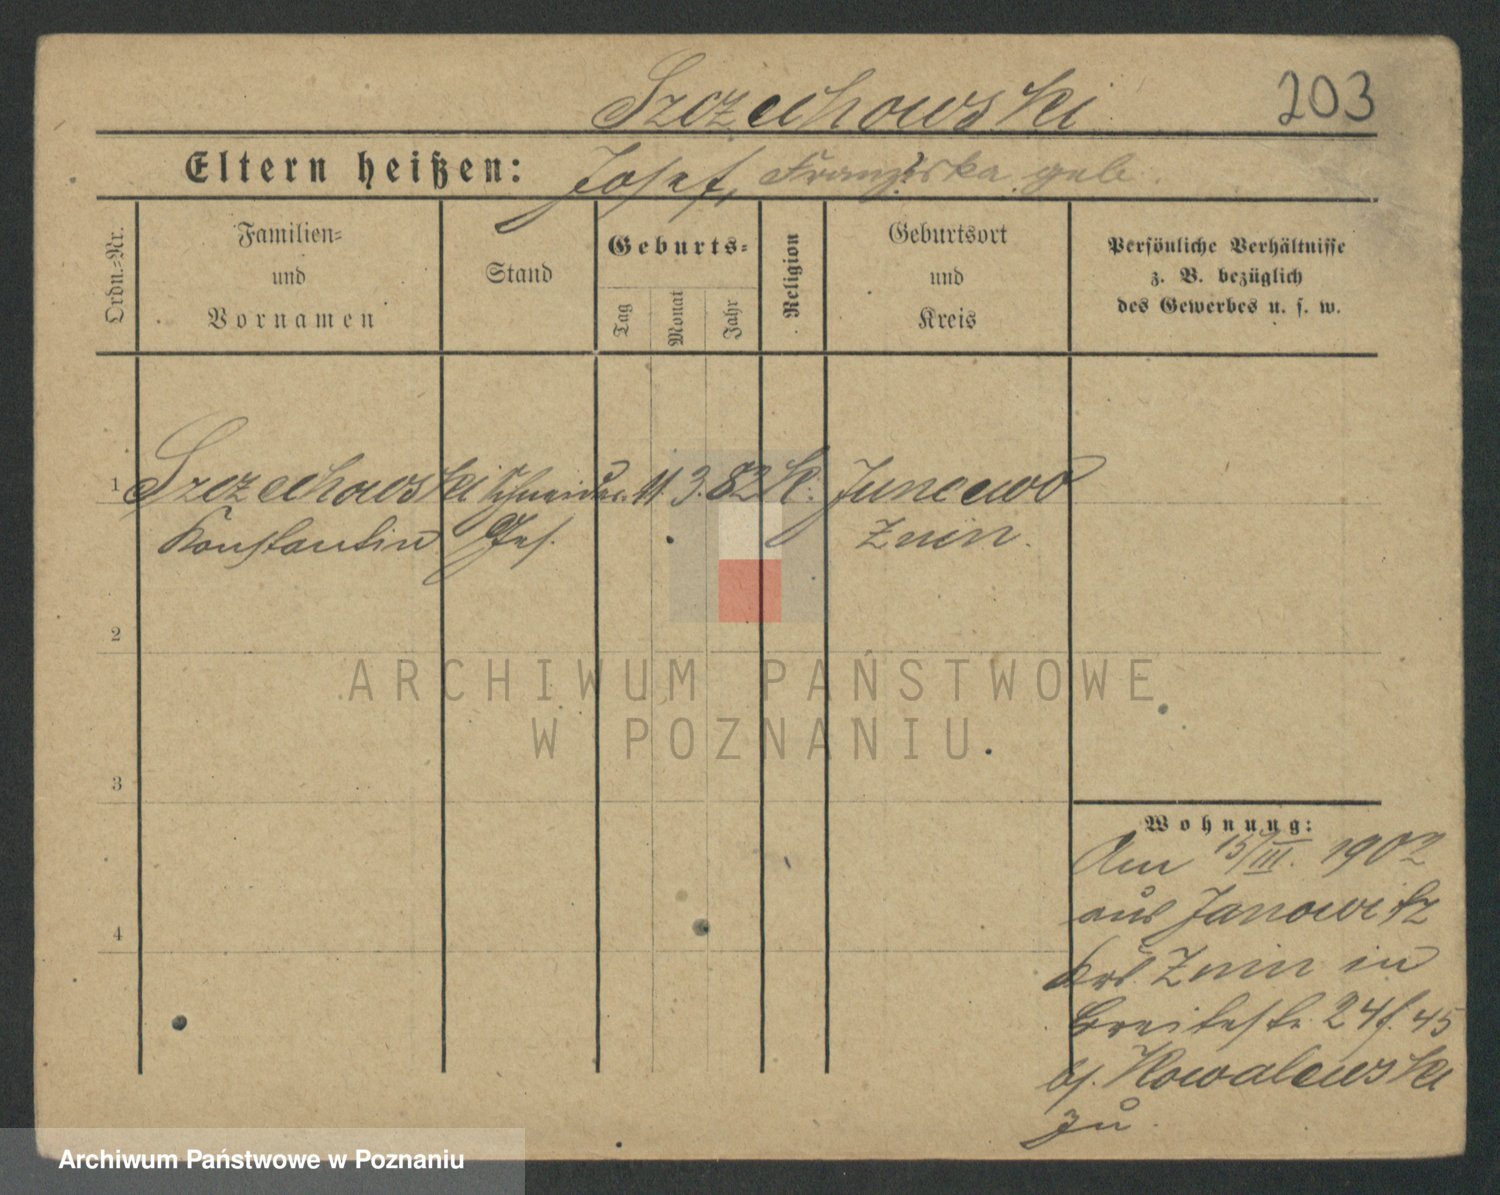 Szczechowski
203
Eltern heißen: Josef, Franziska geb.
Ordn.-Nr.
Familien-
und
Vornamen
Stand
Geburts-
Tag
Monat
Jahr
Religion
Geburtsort
und
Kreis
Persönliche Verhältnisse
z. B. bezüglich
des Gewerbes u. s. w.
1 Szczechowski Schneider 11. 3. 82 K. Juncewo
Konstantin Ges. Znin.
2
3
4
Wohnung:
Am 15/III. 1902
aus Janowitz
Krs. Znin in
Breitestr. 24 f. 45
bj. Kowalewski
zu.
ARCHIWUM PAŃSTWOWE
W POZNANIU
Archiwum Państwowe w Poznaniu